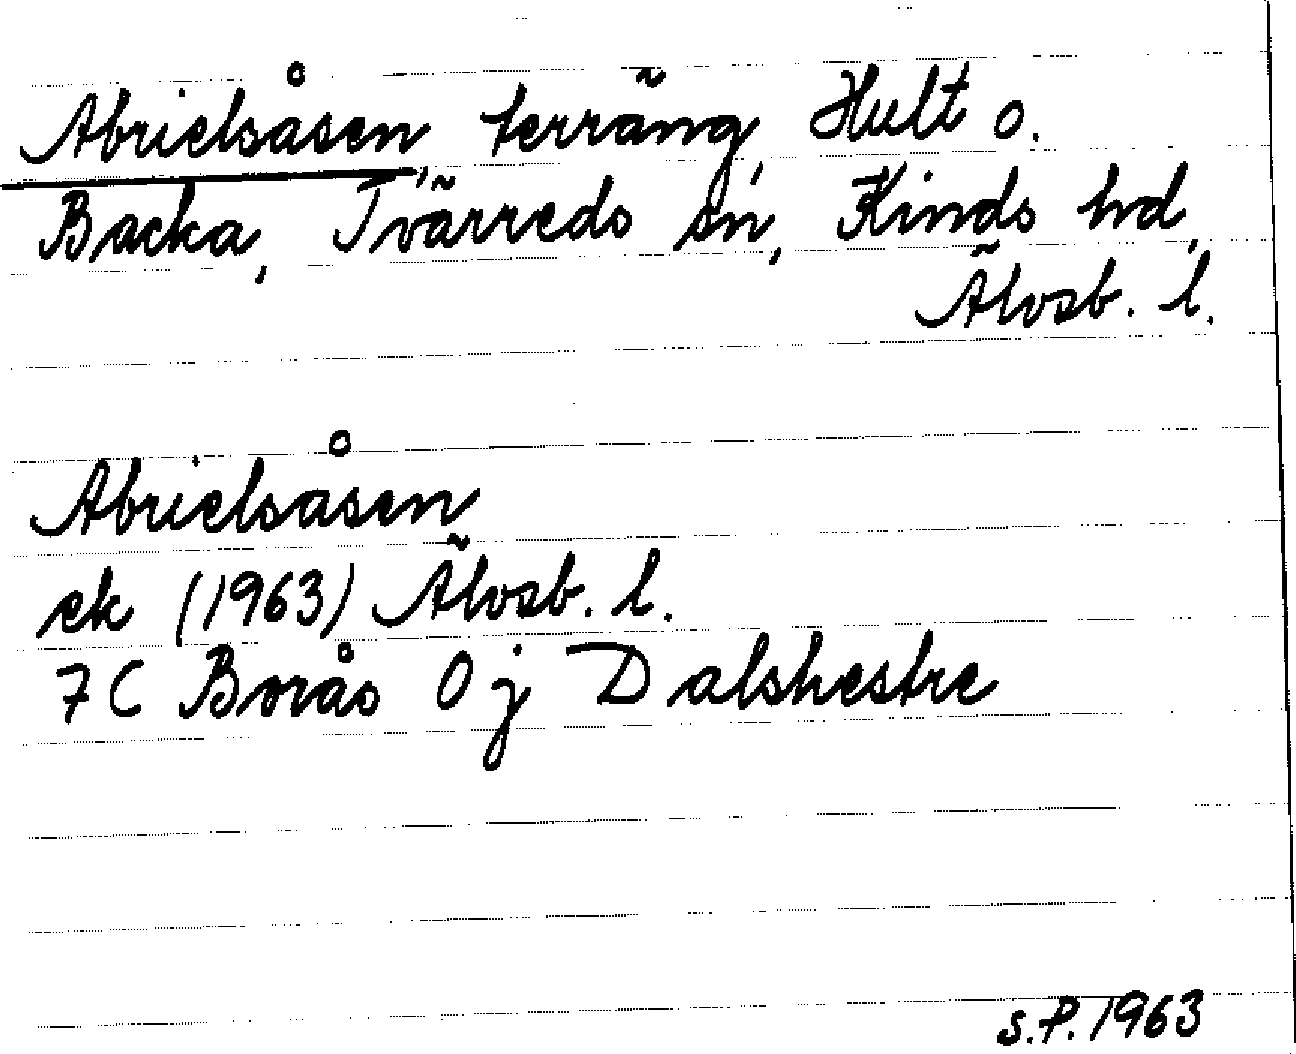 Abrielsåsen, terräng, Hult o.
Backa, Tvärreds sn, Kinds hd,
Älvsb. l.
Abrielsåsen
ek (1963) Älvsb. l.
7C Borås 0j Dalshestre
S.P. 1963